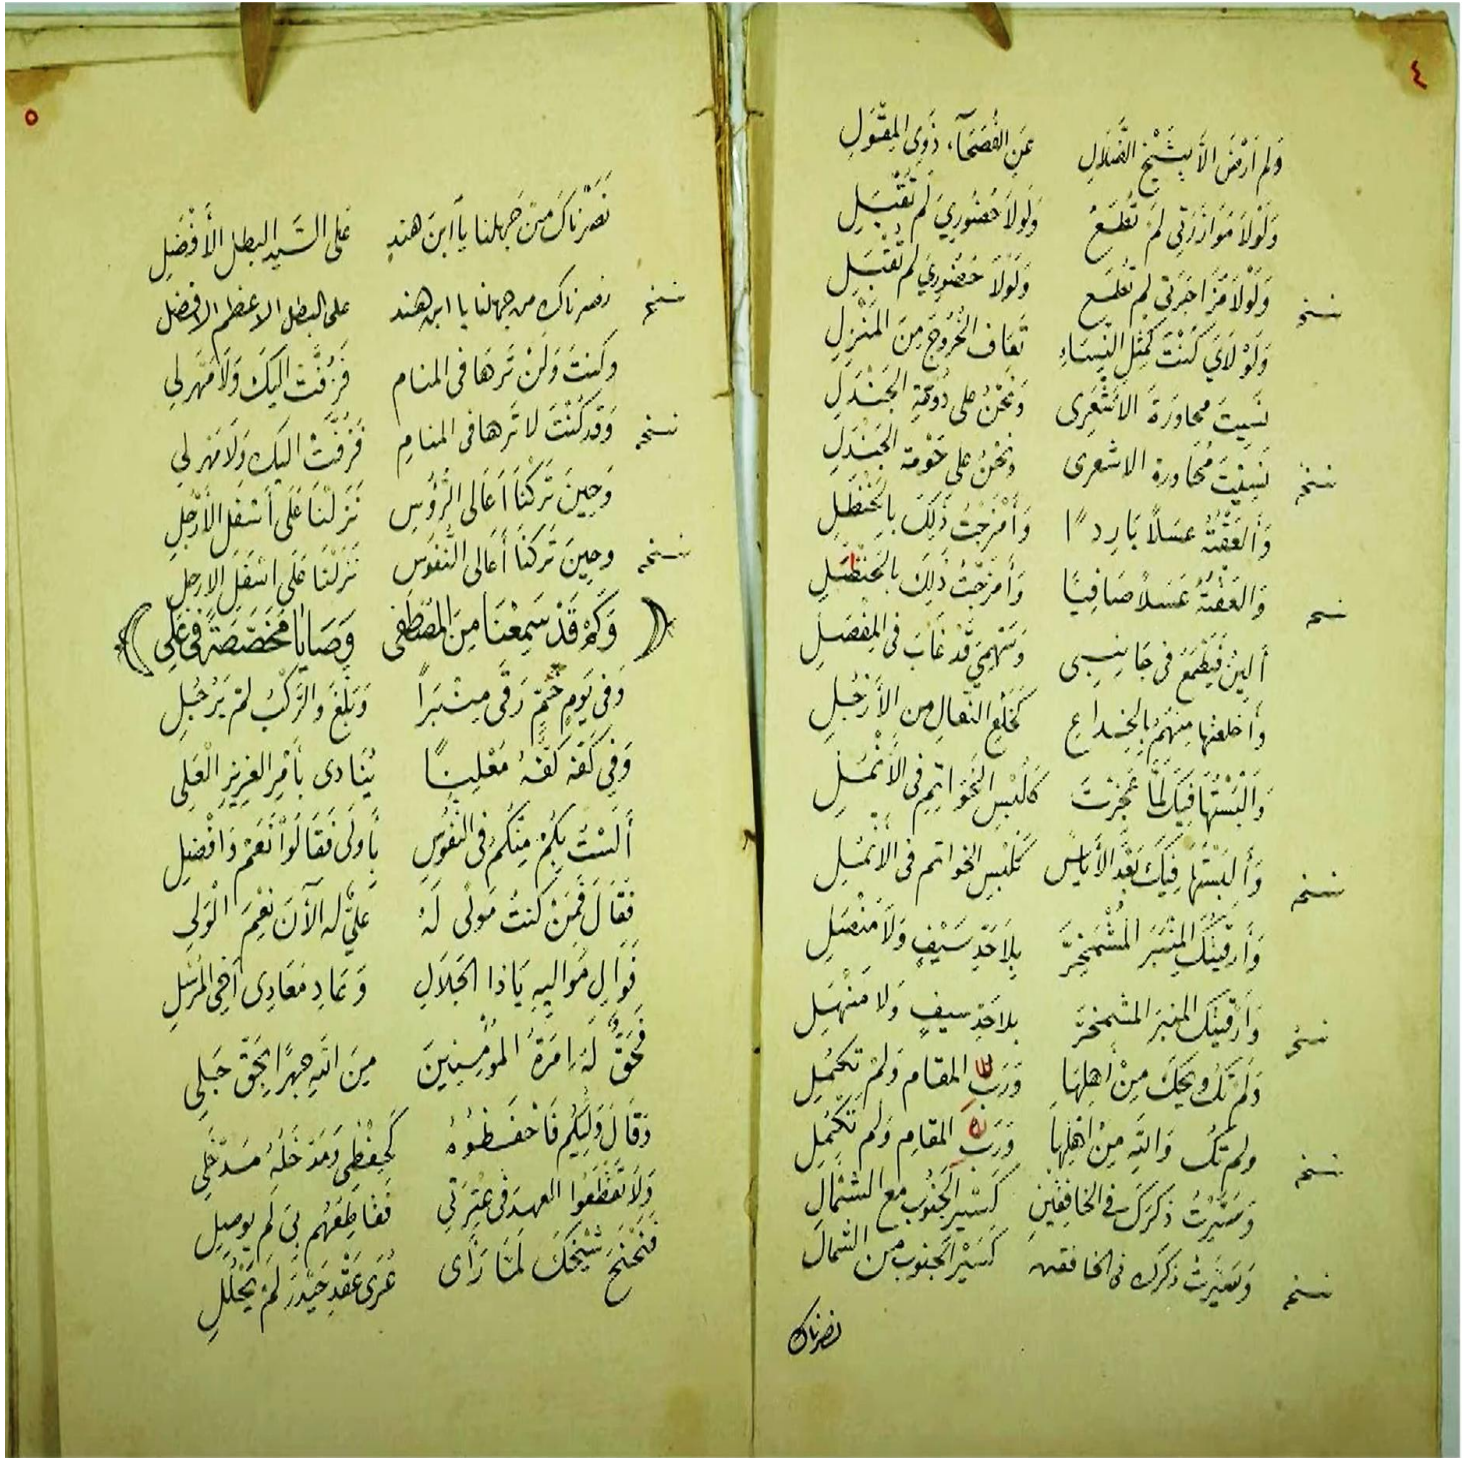 ٤
وَلَم اَرْضَ الاَّ بِشَيْخِ الضَّلَالِ عَنِ الفُصَحَآءِ ذَوِى المِقْوَلِ
وَلَوْلَا مَوَازَرَتِى لَمْ تُطَعْ وَلَولَا حُضُورِيَ لَم تُقْبَلِ
نسخه وَلَوْلَا لَم تُطَع وَلَوْلَا حُضُورِيَ لَم تُقْبَلِ
وَلَوْ لَايَ كُنْتَ كَمِثْلِ النِّسَاءِ تَعَاف الخُرُوجَ مِنَ المَنْزِلِ
نَسِيتَ محاورَةَ الاَشْعَرِى وَنَحْنُ على دُوْمَةِ الجَنْدَلِ
نسخه نَسِيْتَ مُحَاوَرة الاشعرى ونَحْنُ على حَوْمة الجَنْدَلِ
وَأَلْعَقْتُهُ عَسَلاً بَارِدًا وَأَمْزَجْتُ ذَلِكَ بِالحَنْظَلِ
نسخه وَالعَقْتُهُ عَسَلاً صَافِيًا وَأَمْزَجْتُ ذَلِكَ بالحَنظَلِ
أَلِينُ فَيَطْمَعُ فى جَانِبِى وَسَهْمِيَ قَدْ غَابَ فى المِفْصَلِ
وَأَخلعتها مِنْهُمُ بِالخِدَاعِ كَخَلْعِ النّعالِ مِن الأَرْجُلِ
وَالْبَسْتُهَا فِيكَ لَمَّا عَجِزتَ كَلُبْسِ الخَوَاتِمِ فى الأَنْمُلِ
نسخه وَأَلبَسْتُهَا فِيكَ بَعْدَ الأَيَاسِ كَلُبْسِ الخواتم فى الأَنْمُلِ
وَأَرقَيْتُكَ المِنْبَرَ المُشْمَخِرَّ بِلَا حَدِّ سَيْفٍ وَلَا مُنْصَلِ
نسخه وَأَرْقَيْتُكَ المنبرَ المشمخرَّ بلا حَدِّ سيفٍ وَلا مَنْهَلِ
وَلَم تَكُ ويحَكَ مِنْ أَهلِهَا وَرَبِّ المقَام وَلَمْ تكمُلِ
نسخه ولم تَكُ وَاللّهِ مِنْ اَهْلِهَا وَرَبِّ المقامِ وَلَم تَكْمُلِ
وَسَيَّرْتُ ذِكرَكَ فى الخافِقَينِ كَسَيْرِ الجَنُوبِ مع الشَّمْالِ
نسخه وَسَيَّرتُ ذكرَك فى الخافقين كَسَيْرِ الجَنوب من الشمال
نصرناك
٥
نَصَرْنَاكَ مِنْ جَهلِنا يَا ابنَ هندٍ عَلى السَّيدِ البطلِ الأَفْضَلِ
نسخه نصرناك من جهلنا يا ابن هند على البطل الاعظم الافضل
وكنتَ وَلَنْ تَرَهَا فى المنام فَزُفَّت اليكَ وَلَا مَهْر لى
نسخه وَقَد كُنْتَ لا تَرها فى المنامِ فَزُفَّتْ اليك وَلَا مَهْر لى
وَحِينَ تَرَكْنَا اَعَالى الرُّؤُسِ نَزَلْنَا عَلَى أَسْفَلِ الأَرْجُلِ
نسخه وحِينَ تَرَكنَا أَعَالى النُّفوس نَزَلْنَا عَلى اَسْفَلِ الارجلِ
وَكَمْ قَدْ سَمِعْنَا مِنَ المُصْطَفى وَصَايَا مُخَصَّصَةً فى عَلِى
وَفى يَومِ خُمٍّ رَقَى مِنْبَراً وَبَلَّغَ وَالرَّكْبُ لَمْ يَرْحُلِ
وَفِي كَفّهِ كَفُّهُ مُعْلِنًا يُنَادى بأَمْرِ العَزِيزِ العَلِى
أَلَسْتُ بِكُمْ مِنْكُمُ فى النّفُوسِ بأَولَى فَقَالُوْا نَعَمْ وَافْضِلِ
فَقَالَ فَمَنْ كنتُ مَولًى لَهُ عَلِيٌّ لَه الآنَ نِعْمَ الْوَلِى
فَوَالِ مُوَالِيهِ يَا ذا الجَلَالِ وَعَادِ مُعَادِى اَخِى المُرْسَلِ
فَحَقَّ لَهُ إمرَةُ المُؤْمِنِينَ مِنَ اللّهِ جهرًا بِحَقّ جَلِى
وَقَالَ وَلِيُّكُم فَاحْفَظُوْهُ كَحِفْظِى وَمَدْخَلُهُ مَدْخَلِى
وَلَا تَقْطَعُوا العهدَ فى عِتْرَتِي فَقَاطِعُهُم بِيَ لَم يُوصِلِ
فَنَحْنَحَ شَيْخُكَ لَمَّا رَأَى عُرَى عَقْدِ حَيْدَرَ لَمْ يُحْلَلِ